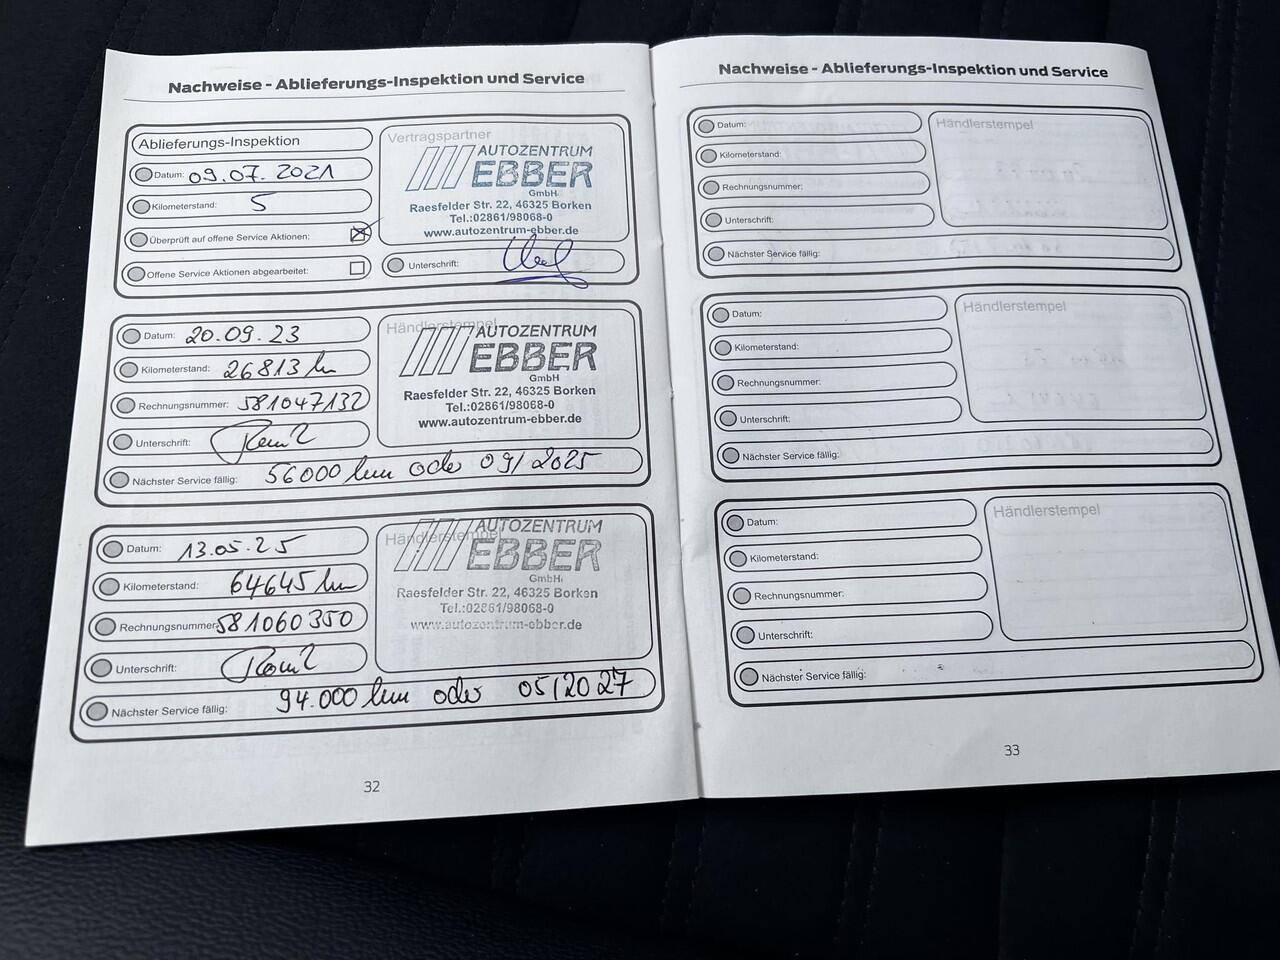 Nachweise - Ablieferungs-Inspektion und Service
Ablieferungs-Inspektion
Datum: 09.07.2021
Kilometerstand: 5
Überprüft auf offene Service Aktionen:
Offene Service Aktionen abgearbeitet:
Vertragspartner
AUTOZENTRUM
EBBER
GmbH
Raesfelder Str. 22, 46325 Borken
Tel.:02861/98068-0
www.autozentrum-ebber.de
Unterschrift:
Datum: 20.09.23
Kilometerstand: 26813 km
Rechnungsnummer: 581047132
Unterschrift:
Nächster Service fällig: 56000 km oder 09/2025
Händlerstempel
AUTOZENTRUM
EBBER
GmbH
Raesfelder Str. 22, 46325 Borken
Tel.:02861/98068-0
www.autozentrum-ebber.de
Datum: 13.05.25
Kilometerstand: 64645 km
Rechnungsnummer: 581060350
Unterschrift:
Nächster Service fällig: 94.000 km oder 05/2027
Händlerstempel
AUTOZENTRUM
EBBER
GmbH
Raesfelder Str. 22, 46325 Borken
Tel.:02861/98068-0
www.autozentrum-ebber.de
32
Nachweise - Ablieferungs-Inspektion und Service
Datum:
Kilometerstand:
Rechnungsnummer:
Unterschrift:
Nächster Service fällig:
Händlerstempel
Datum:
Kilometerstand:
Rechnungsnummer:
Unterschrift:
Nächster Service fällig:
Händlerstempel
Datum:
Kilometerstand:
Rechnungsnummer:
Unterschrift:
Nächster Service fällig:
Händlerstempel
33